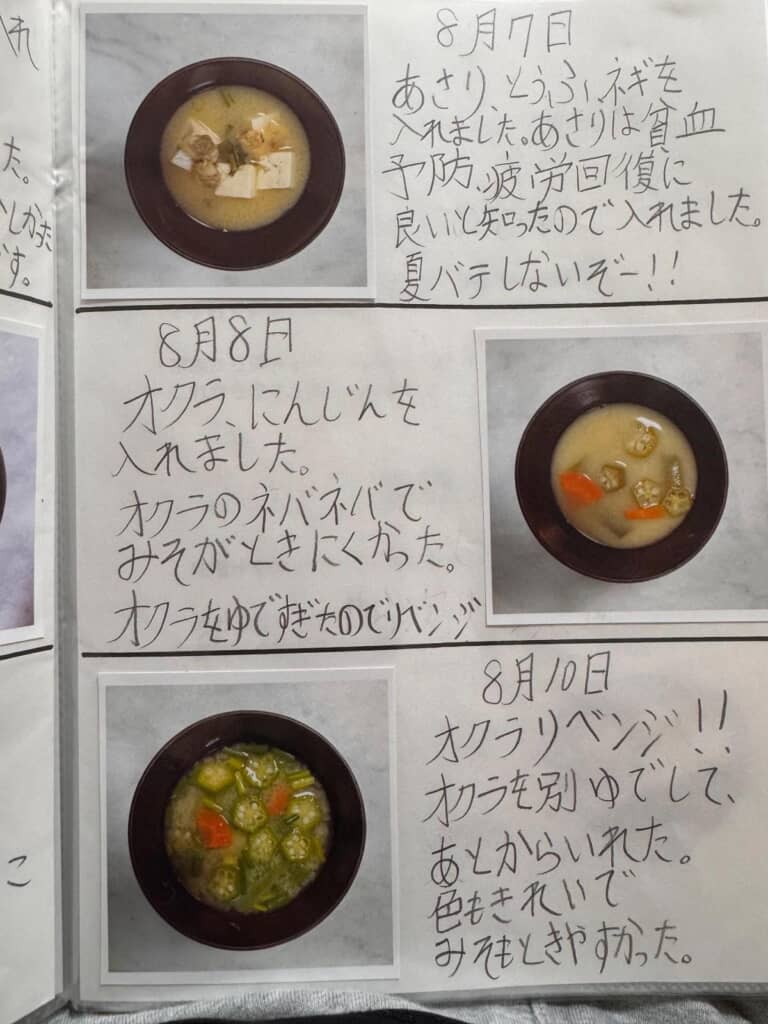 入れ
た。
しかった
す。
こ
8月7日
あさり、とうふ、ネギを
入れました。あさりは貧血
予防、疲労回復に
良いと知ったので入れました。
夏バテしないぞー!!
8月8日
オクラ、にんじんを
入れました。
オクラのネバネバで
みそがときにくかった。
オクラをゆですぎたのでリベンジ
8月10日
オクラリベンジ!!
オクラを別ゆでして、
あとからいれた。
色もきれいで
みそもときやすかった。